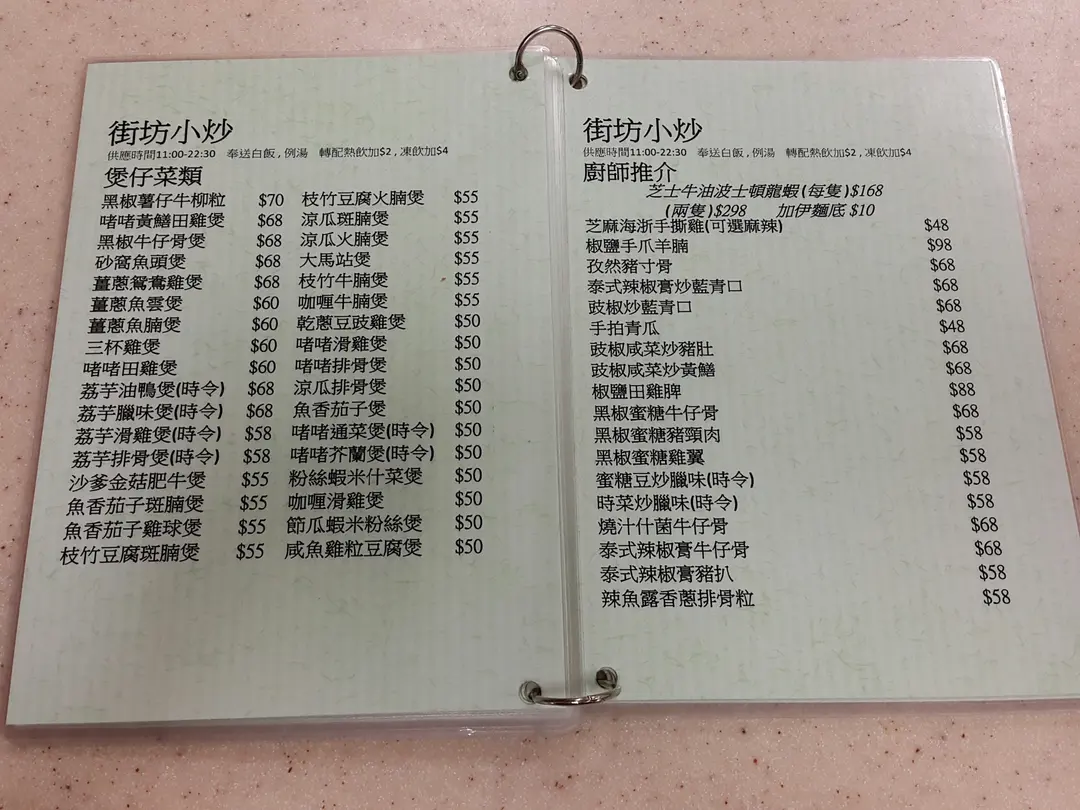 街坊小炒
供應時間11:00-22:30 奉送白飯 , 例湯 轉配熱飲加$2 , 凍飲加$4
煲仔菜類
黑椒薯仔牛柳粒 $70 枝竹豆腐火腩煲 $55
啫啫黃鱔田雞煲 $68 涼瓜斑腩煲 $55
黑椒牛仔骨煲 $68 涼瓜火腩煲 $55
砂窩魚頭煲 $68 大馬站煲 $55
薑蔥鴛鴦雞煲 $68 枝竹牛腩煲 $55
薑蔥魚雲煲 $60 咖喱牛腩煲 $55
薑蔥魚腩煲 $60 乾蔥豆豉雞煲 $50
三杯雞煲 $60 啫啫滑雞煲 $50
啫啫田雞煲 $60 啫啫排骨煲 $50
荔芋油鴨煲(時令) $68 涼瓜排骨煲 $50
荔芋臘味煲(時令) $68 魚香茄子煲 $50
荔芋滑雞煲(時令) $58 啫啫通菜煲(時令) $50
荔芋排骨煲(時令) $58 啫啫芥蘭煲(時令) $50
沙爹金菇肥牛煲 $55 粉絲蝦米什菜煲 $50
魚香茄子斑腩煲 $55 咖喱滑雞煲 $50
魚香茄子雞球煲 $55 節瓜蝦米粉絲煲 $50
枝竹豆腐斑腩煲 $55 咸魚雞粒豆腐煲 $50
街坊小炒
供應時間11:00-22:30 奉送白飯 , 例湯 轉配熱飲加$2 , 凍飲加$4
廚師推介
芝士牛油波士頓龍蝦 (每隻 )$168
(兩隻 )$298 加伊麵底 $10
芝麻海浙手撕雞(可選麻辣) $48
椒鹽手爪羊腩 $98
孜然豬寸骨 $68
泰式辣椒膏炒藍青口 $68
豉椒炒藍青口 $68
手拍青瓜 $48
豉椒咸菜炒豬肚 $68
豉椒咸菜炒黃鱔 $68
椒鹽田雞脾 $88
黑椒蜜糖牛仔骨 $68
黑椒蜜糖豬頸肉 $58
黑椒蜜糖雞翼 $58
蜜糖豆炒臘味(時令) $58
時菜炒臘味(時令) $58
燒汁什菌牛仔骨 $68
泰式辣椒膏牛仔骨 $68
泰式辣椒膏豬扒 $58
辣魚露香蔥排骨粒 $58